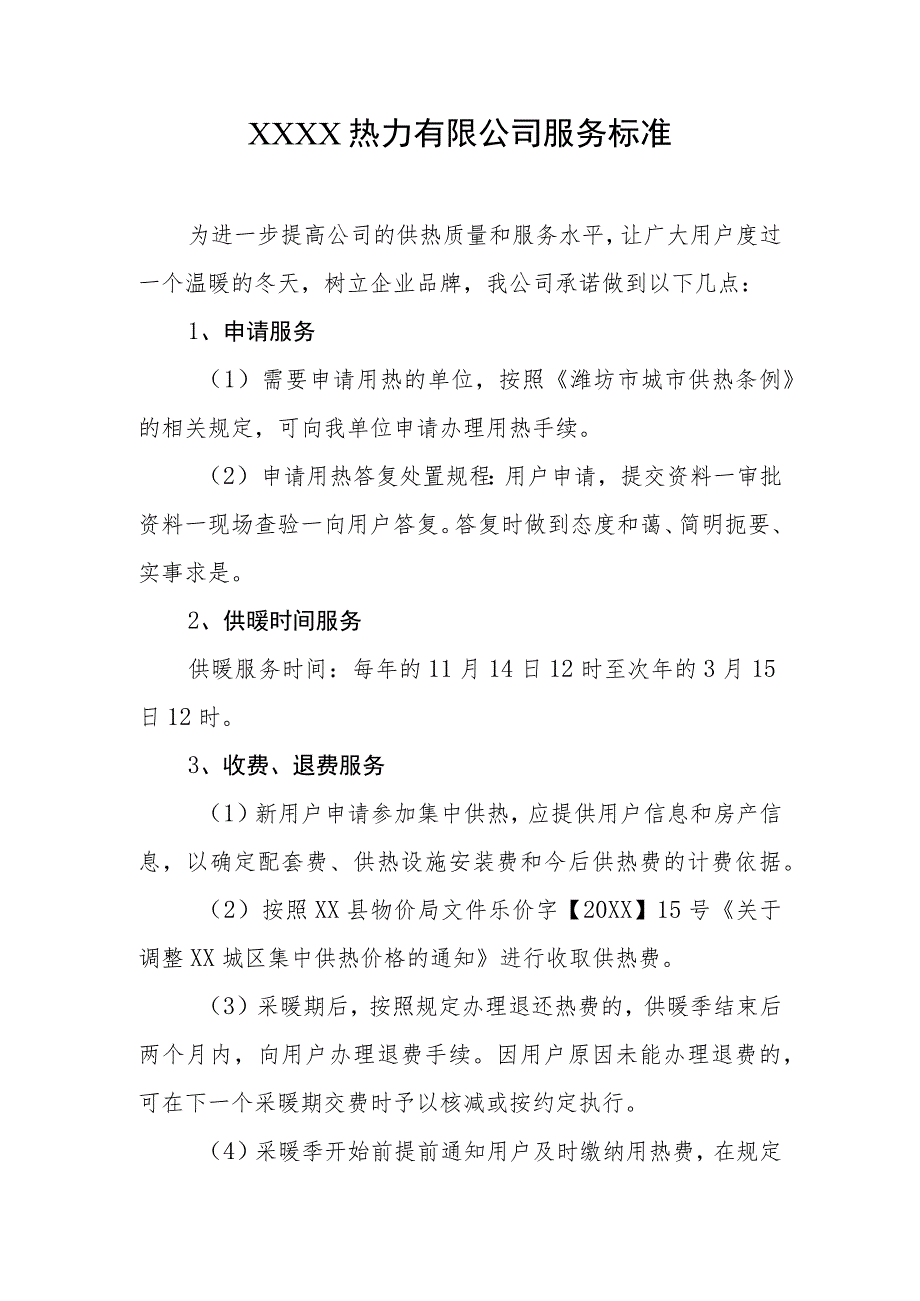 XXXX 热力有限公司服务标准
为进一步提高公司的供热质量和服务水平，让广大用户度过
一个温暖的冬天，树立企业品牌，我公司承诺做到以下几点：
1、申请服务
（1）需要申请用热的单位，按照《潍坊市城市供热条例》
的相关规定，可向我单位申请办理用热手续。
（2）申请用热答复处置规程：用户申请，提交资料一审批
资料一现场查验一向用户答复。答复时做到态度和蔼、简明扼要、
实事求是。
2、供暖时间服务
供暖服务时间：每年的 11 月 14 日 12 时至次年的 3 月 15
日 12 时。
3、收费、退费服务
（1）新用户申请参加集中供热，应提供用户信息和房产信
息，以确定配套费、供热设施安装费和今后供热费的计费依据。
（2）按照 XX 县物价局文件乐价字【20XX】15 号《关于
调整 XX 城区集中供热价格的通知》进行收取供热费。
（3）采暖期后，按照规定办理退还热费的，供暖季结束后
两个月内，向用户办理退费手续。因用户原因未能办理退费的，
可在下一个采暖期交费时予以核减或按约定执行。
（4）采暖季开始前提前通知用户及时缴纳用热费，在规定